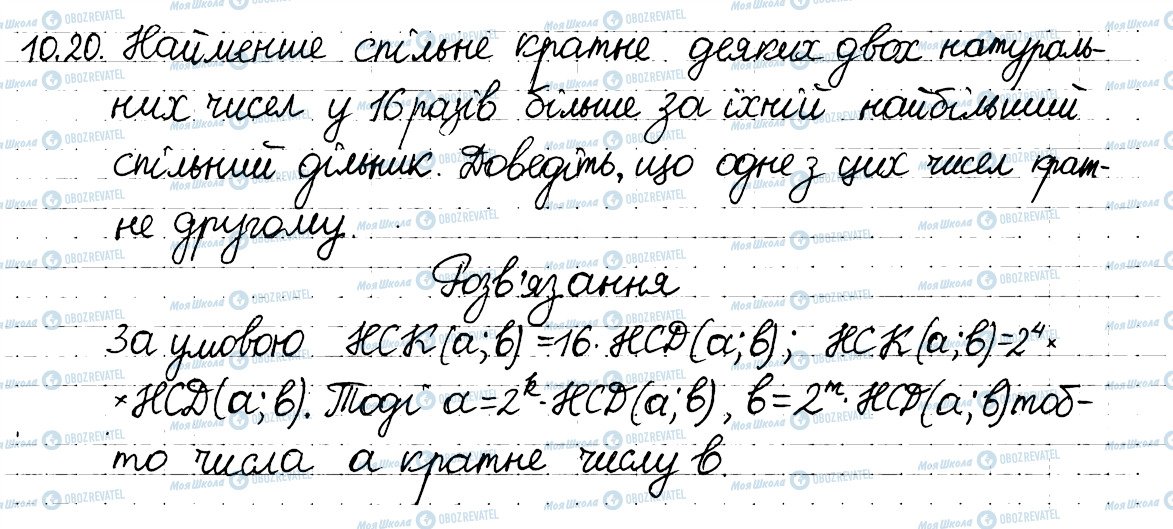 10.20. Найменше спільне кратне деяких двох натураль-
них чисел у 16 разів більше за їхній найбільший
спільний дільник. Доведіть, що одне з цих чисел крат-
не другому.
Розв'язання
За умовою НСК(а;в)=16·НСД(а;в); НСК(а;в)=2⁴×
×НСД(а;в). Тоді а=2ᵏ·НСД(а;в), в=2ᵐ·НСД(а;в) тоб-
то числа а кратне числу в.